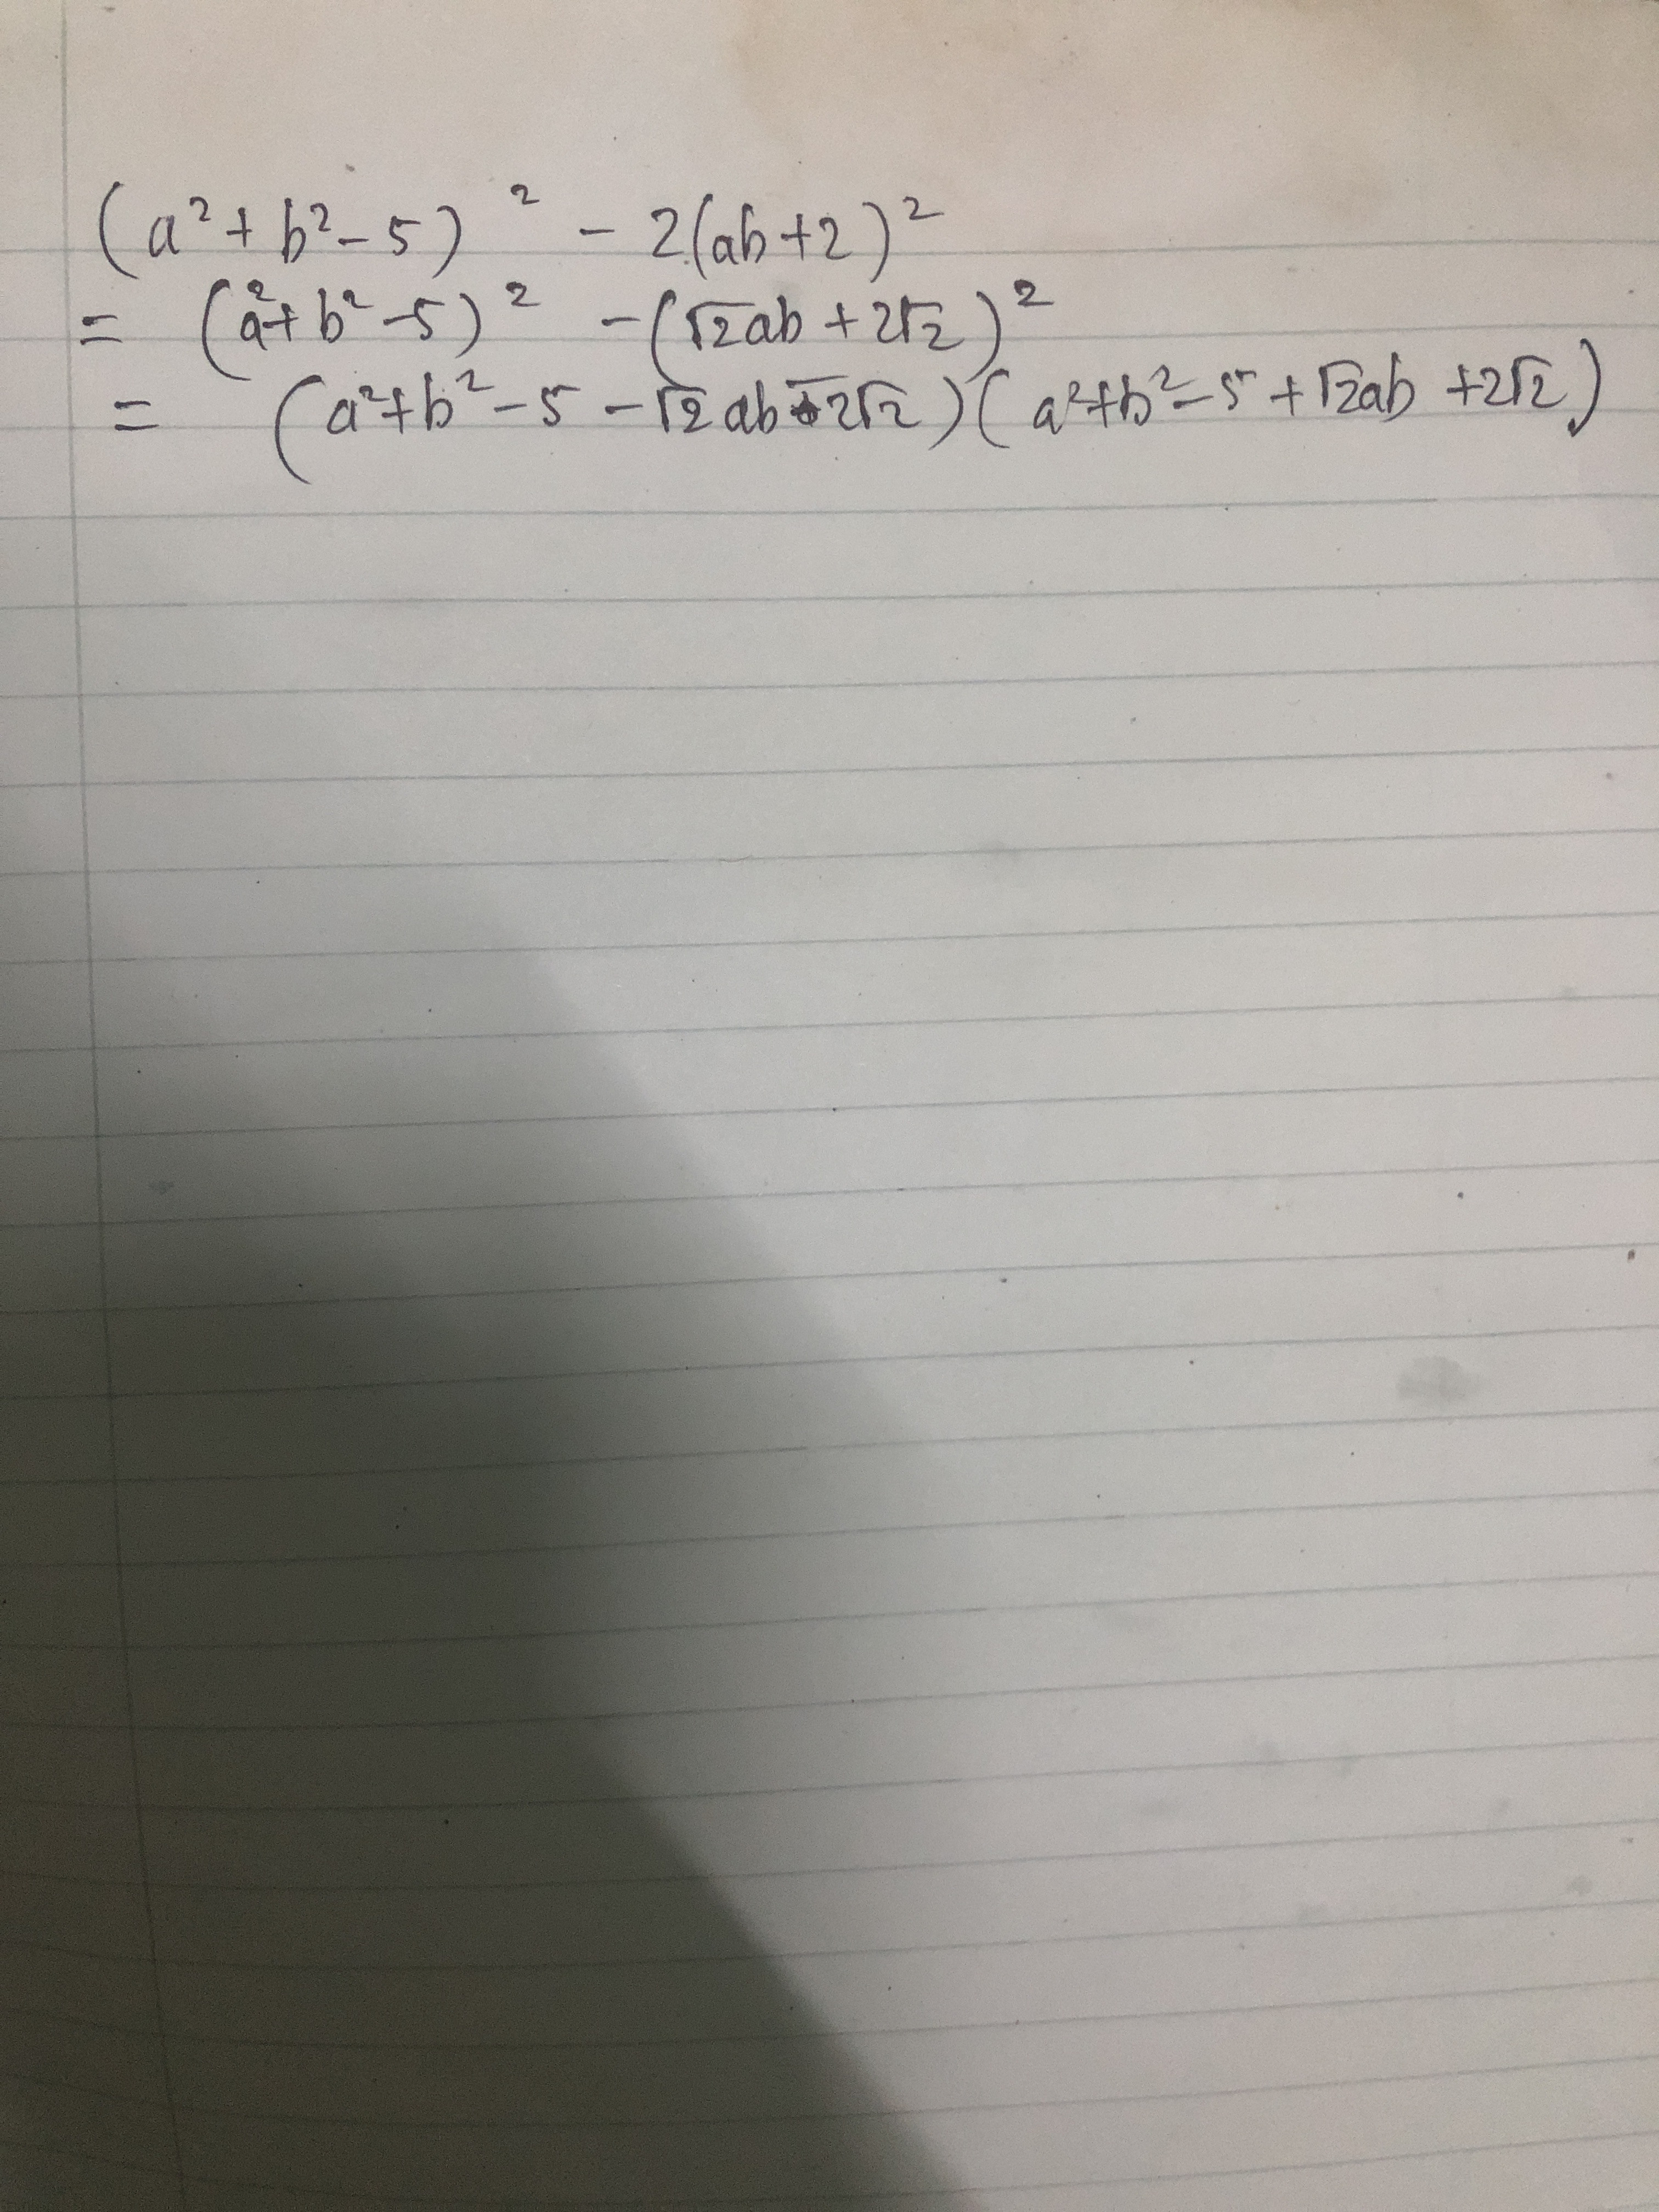 (a²+b²-5)² - 2(ab+2)²
= (a²+b²-5)² -(√2ab+2√2)²
= (a²+b²-5-√2ab-2√2)(a²+b²-5+√2ab+2√2)